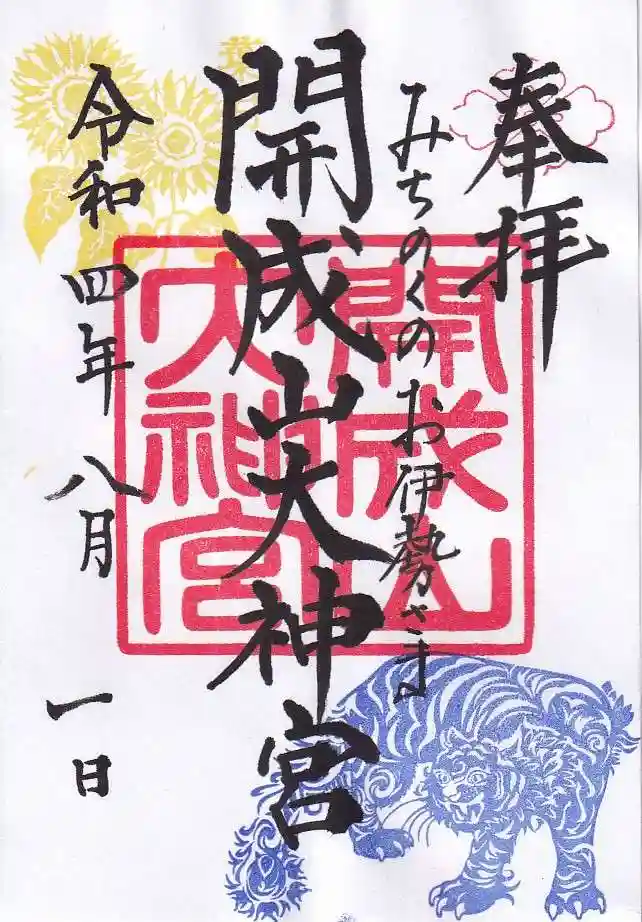 奉拝
みちのくのお伊勢さま
開成山大神宮
令和四年八月一日
開成山
大神宮
葉月